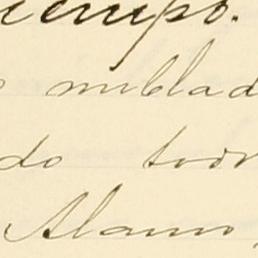 iempo.
nublad
do todo
Alamo,